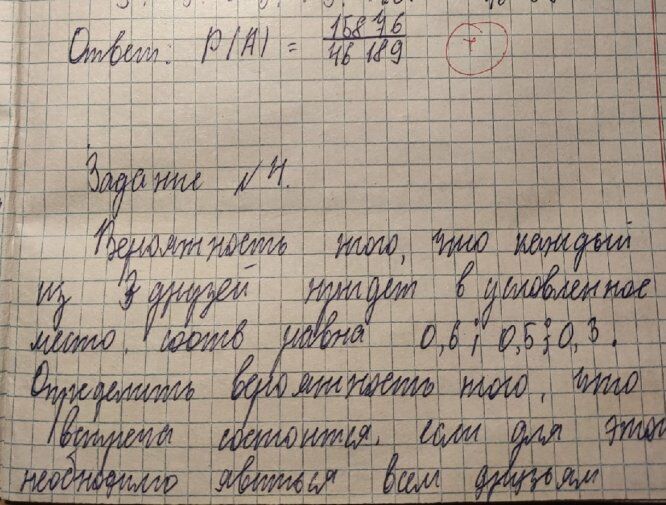 Ответ: P(A) = 15876 / 46189 +
Задание №4.
Вероятность того, что каждый
из 3 друзей придет в условленное
место, соотв равна 0,6; 0,5; 0,3.
Определить вероятность того, что
встреча состоится, если для этого
необходимо явиться всем друзьям